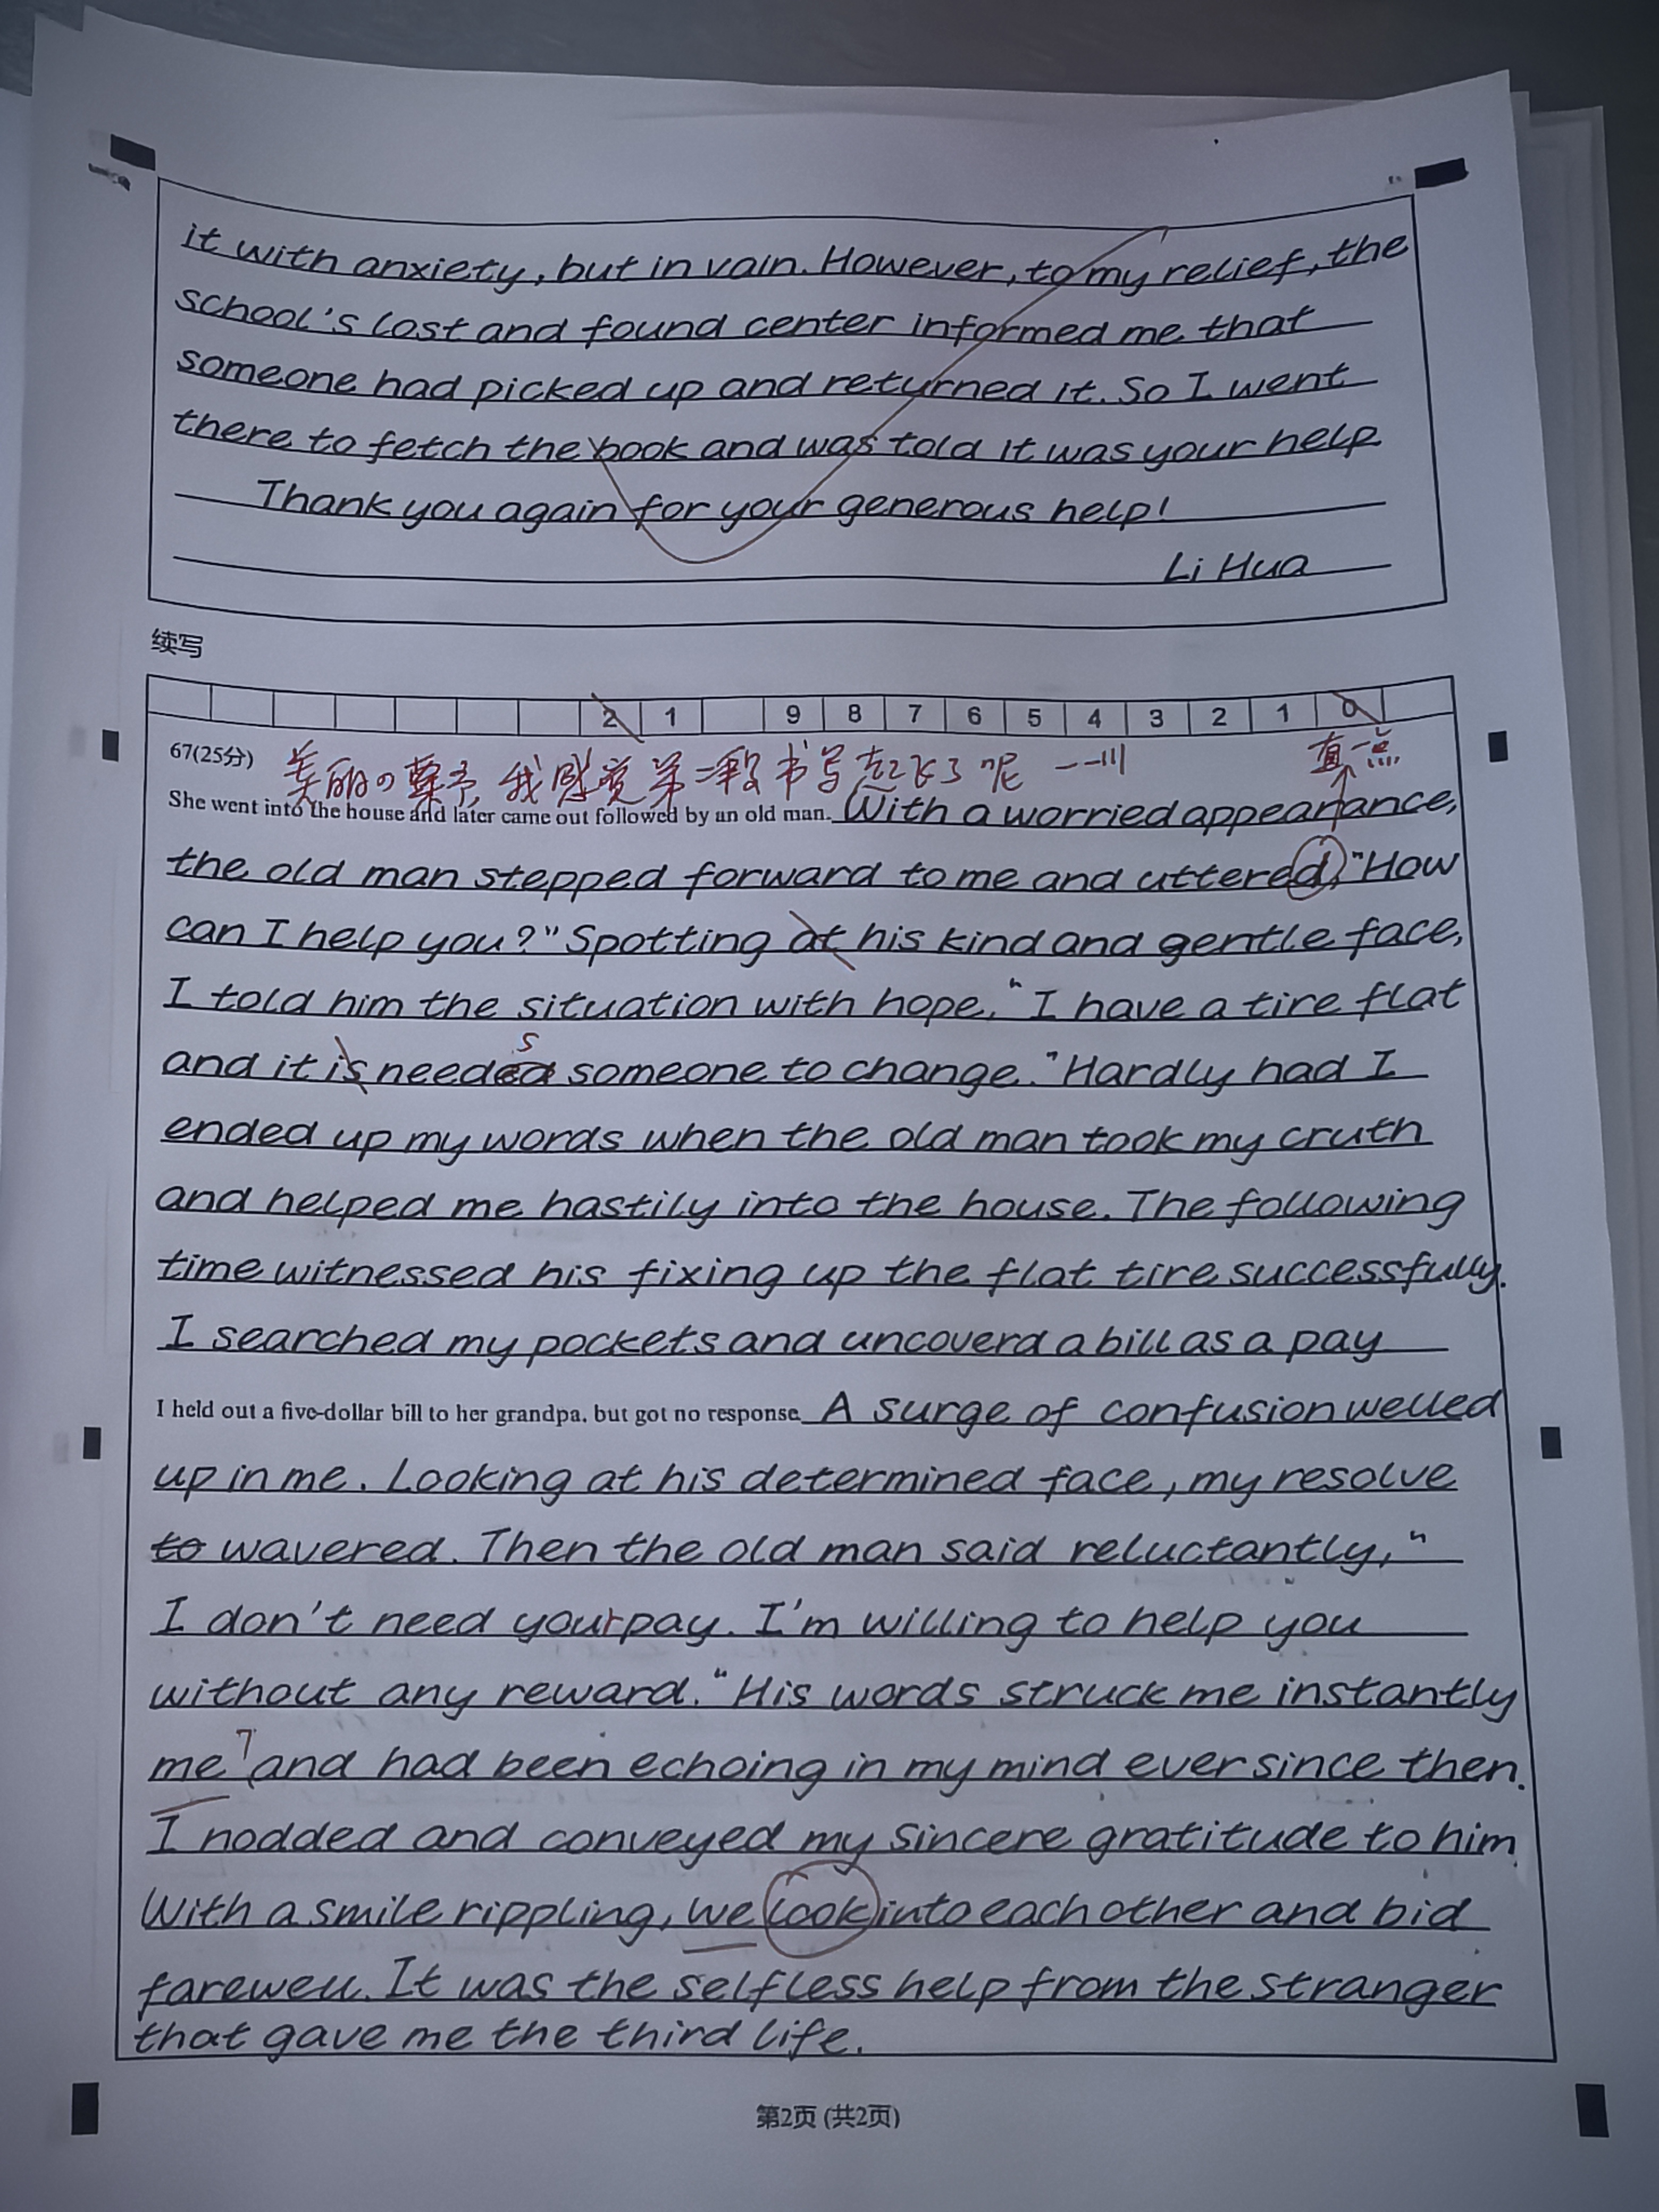 it with anxiety, but in vain. However, to my relief, the
school's lost and found center informed me that
someone had picked up and returned it. So I went
there to fetch the book and was told it was your help
Thank you again for your generous help!
Li Hua
续写
2 1 9 8 7 6 5 4 3 2 1 0
67(25分) 美丽の 我感觉第二段书写起飞了呢 直一点
She went into the house and later came out followed by an old man. With a worried appearance,
the old man stepped forward to me and uttered, "How
can I help you?" Spotting at his kind and gentle face,
I told him the situation with hope. "I have a tire flat
s
and it is needed someone to change." Hardly had I
ended up my words when the old man took my cruth
and helped me hastily into the house. The following
time witnessed his fixing up the flat tire successfully.
I searched my pockets and uncoverd a bill as a pay
I held out a five-dollar bill to her grandpa, but got no response. A surge of confusion welled
up in me. Looking at his determined face, my resolve
to wavered. Then the old man said reluctantly, "
I don't need your pay. I'm willing to help you
without any reward." His words struck me instantly
me and had been echoing in my mind ever since then.
I nodded and conveyed my sincere gratitude to him.
With a smile rippling, we look into each other and bid
farewell. It was the selfless help from the stranger
that gave me the third life.
第2页 (共2页)